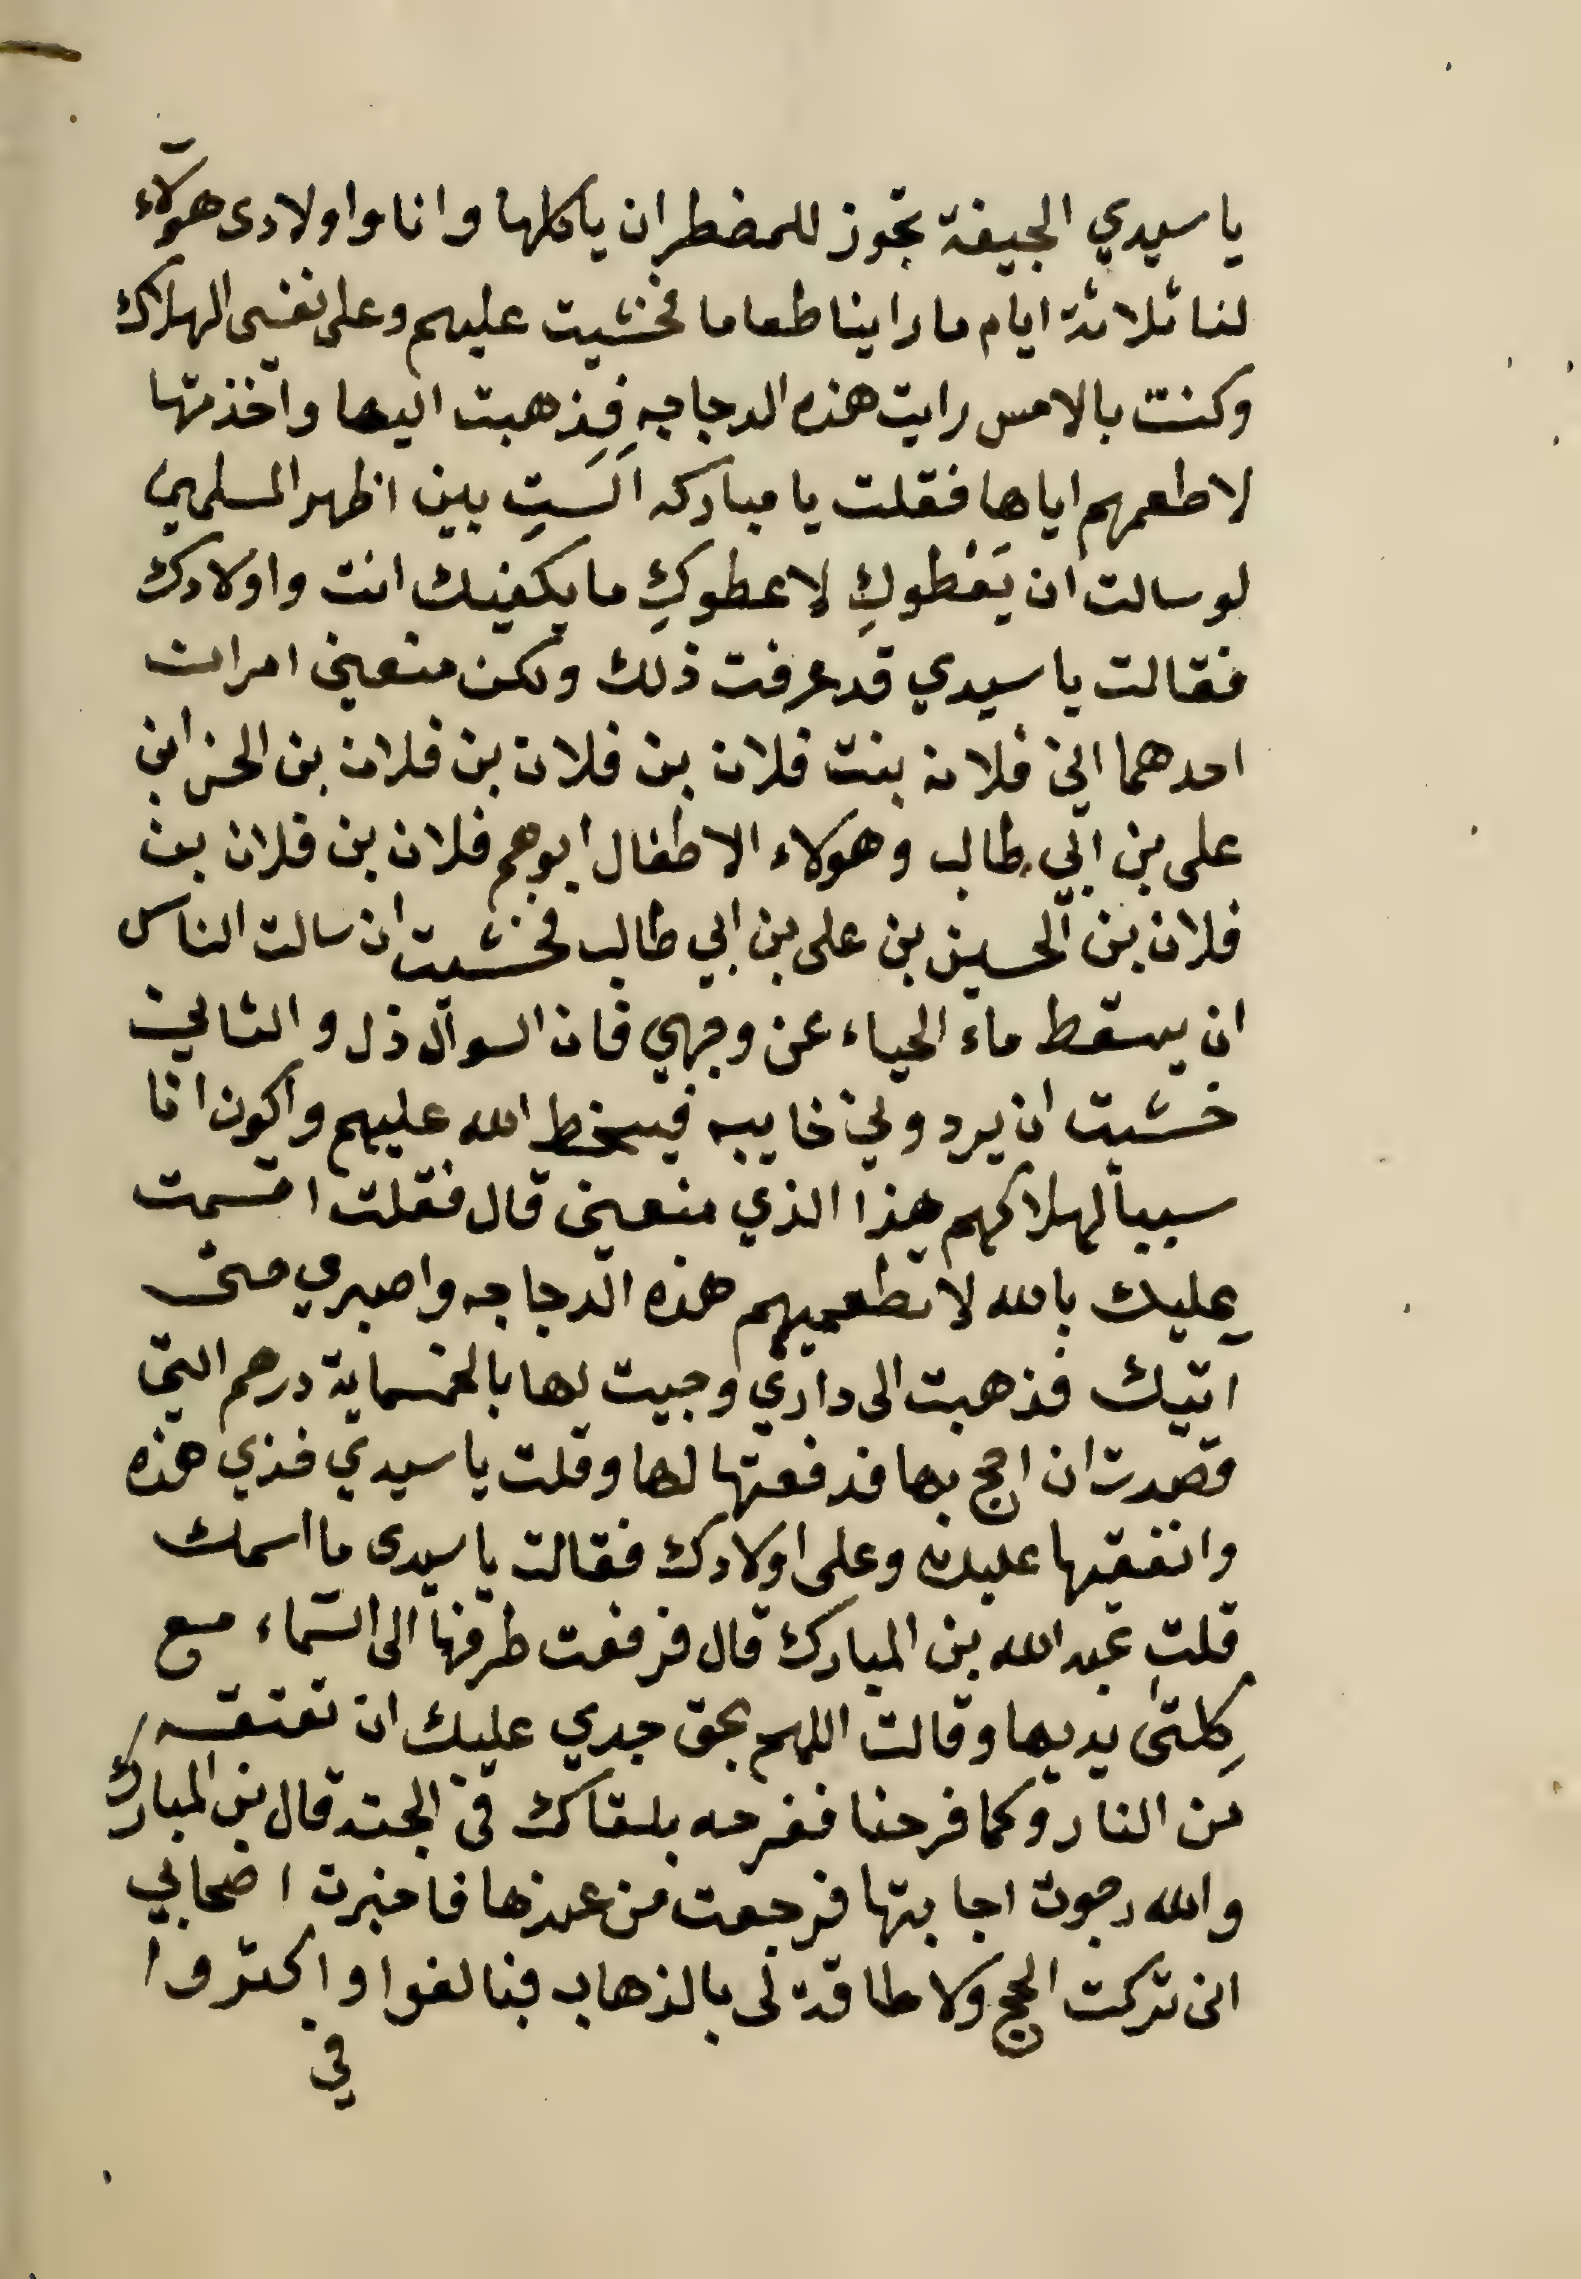 يا سيدي الجيفة تجوز للمضطر ان ياكلها وانا واولادى هولآء
لنا ثلاثة ايام ما راينا طعاما فخشيت عليهم وعلى نفسى الهلاك
وكنت بالامس رايت هذه الدجاجه فذهبت اليها واخذتها
لاطعمهم اياها فقلت يا مباركه الَستِ بين اظهر المسلمين
لو سالت ان يَعْطوكِ لاعطوكِ ما يكفيك انت واولادك
فقالت يا سيدي قد عرفت ذلك ولكن منعنى امران
احدهما اني فلانة بنت فلان بن فلان بن فلان بن الحسن ابن
على بن ابي طالب وهولاء الاطفال ابوهم فلان بن فلان بن
فلان بن الحسين بن على بن ابي طالب فخشيت ان سالت الناس
ان يسقط ماء الحياء عن وجهي فان السوآل ذل والثاني
خشيت ان يردوني خايبه فيسخط الله عليهم واكون انا
سببا لهلاكهم هذا الذي منعنى قال فقلت اقسمت
عليك بالله لا تطعميهم هذه الدجاجه واصبري حتى
آتيك فذهبت الى داري وجيت لها بالخمسماية درهم التي
قصدت ان احج بها فدفعتها لها وقلت يا سيدتي خذي هذه
وانفقيها عليك وعلى اولادك فقالت يا سيدى ما اسمك
قلت عبد الله بن المبارك قال فرفعت طرفها الى السّماء مع
كِلتى يديها وقالت اللهم بحق جدي عليك ان تعتقه
من النار وكما فرحنا ففرحه بلقاك في الجنة قال بن المبارك
والله رجوت اجابتها فرجعت من عندها فاخبرت اصحابي
انى تركت الحج ولا طاقة لى بالذهاب فبالغوا واكثروا
في